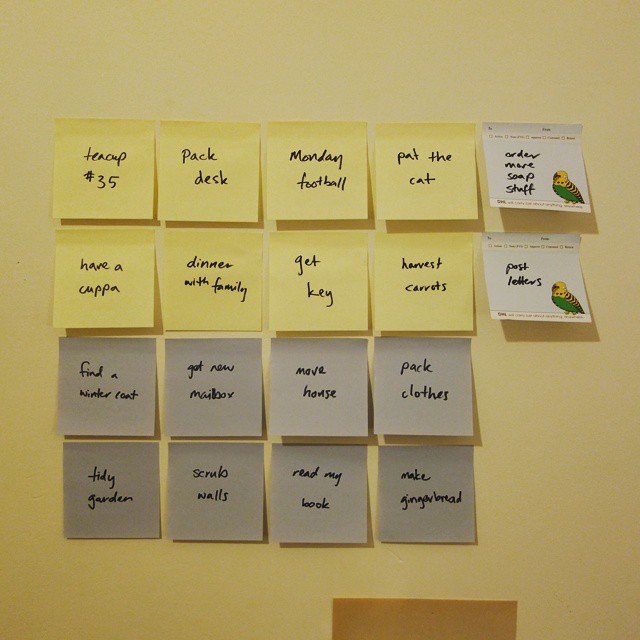 teacup
#35
Pack
desk
Monday
football
pat the
cat
To From
order
more
soap
stuff
have a
cuppa
dinner
with family
get
key
harvest
carrots
To From
post
letters
find a
winter coat
get new
mailbox
move
house
pack
clothes
tidy
garden
scrub
walls
read my
book
make
gingerbread